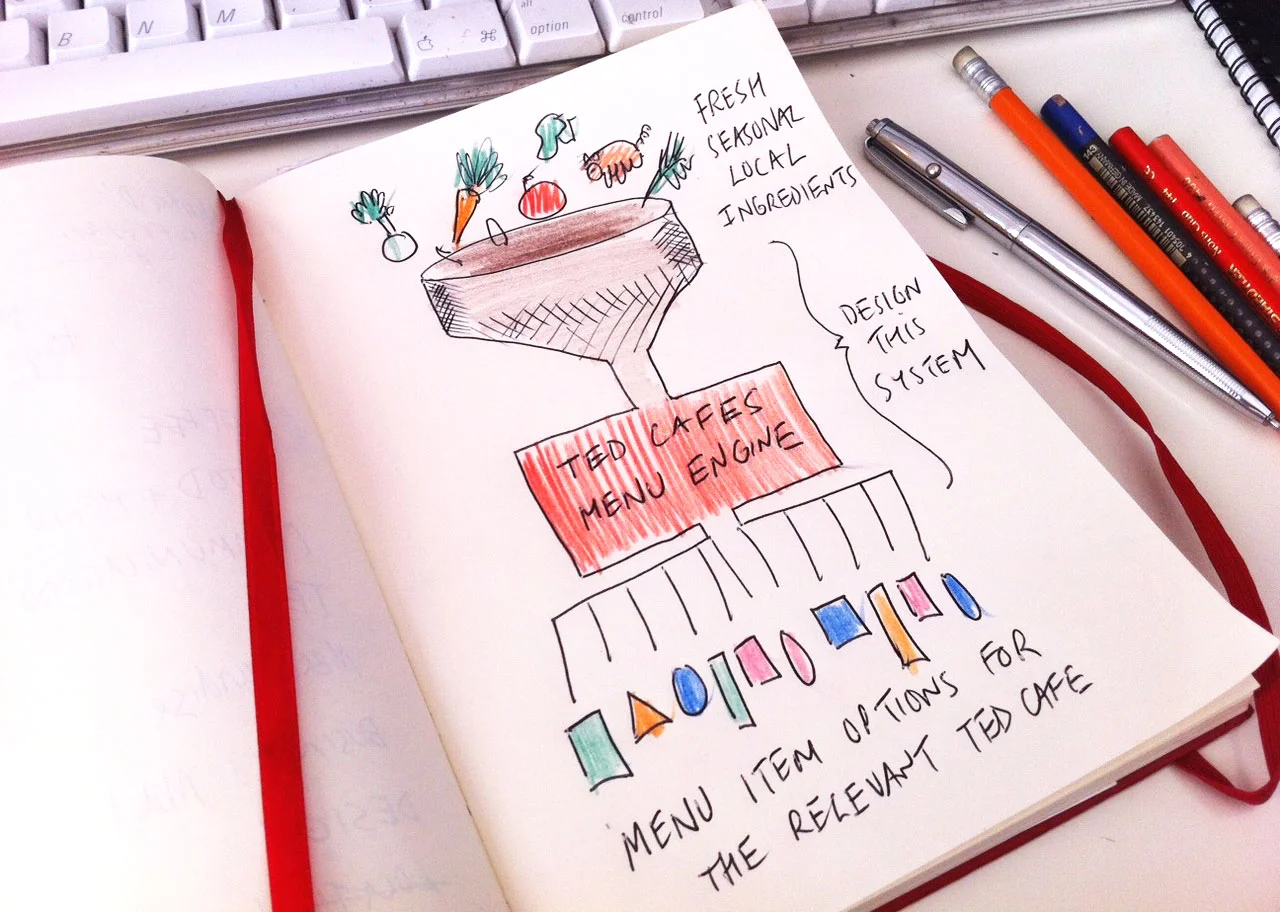 B
N
M
⌘
alt
option
control
FRESH
SEASONAL
LOCAL
INGREDIENTS
DESIGN
THIS
SYSTEM
TED CAFES
MENU ENGINE
MENU ITEM OPTIONS FOR
THE RELEVANT TED CAFE